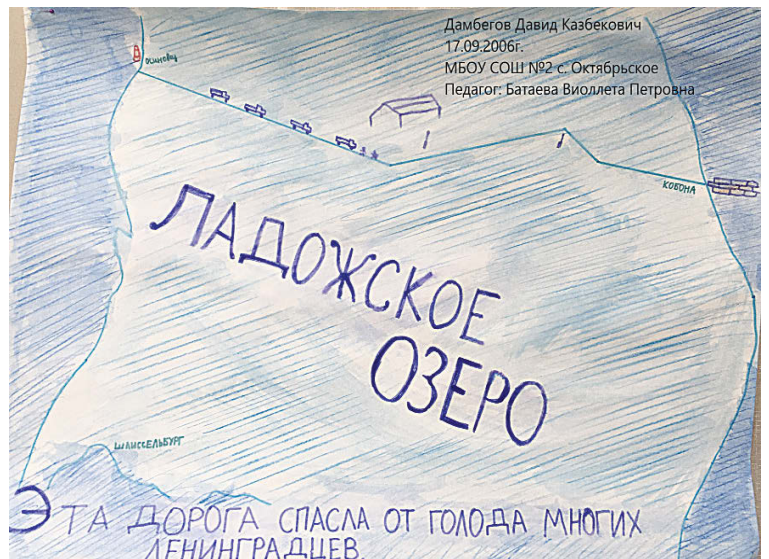 Дамбегов Давид Казбекович
17.09.2006г.
МБОУ СОШ №2 с. Октябрьское
Педагог: Батаева Виоллета Петровна
Осиновец
КОБОНА
ЛАДОЖСКОЕ
ОЗЕРО
ШЛИССЕЛЬБУРГ
ЭТА ДОРОГА СПАСЛА ОТ ГОЛОДА МНОГИХ
ЛЕНИНГРАДЦЕВ.